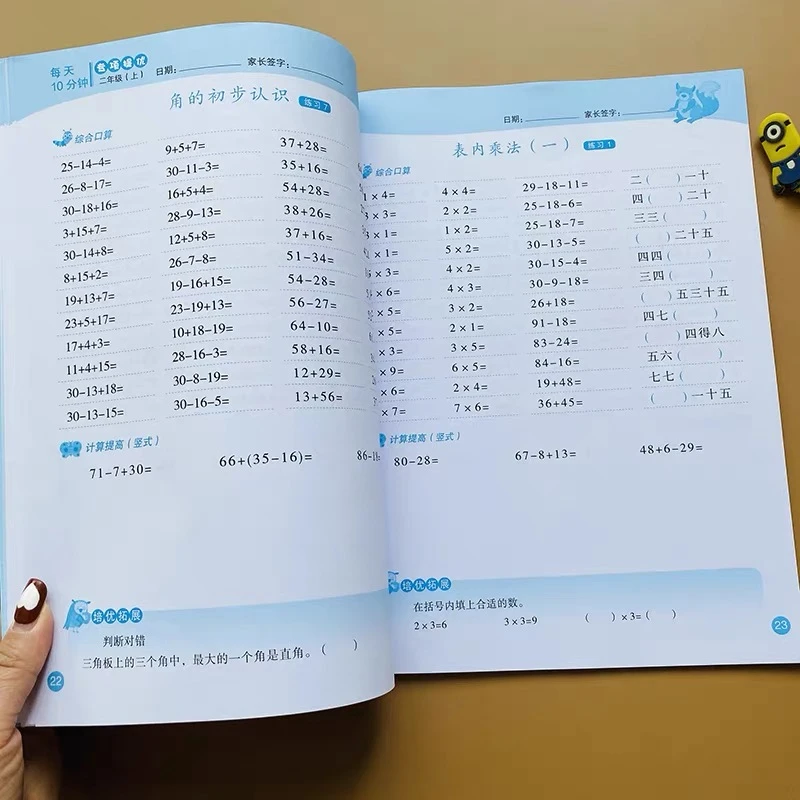 每天
10分钟
二年级（上）
日期：
家长签字：
角的初步认识 练习7
综合口算
25-14-4= 9+5+7= 37+28=
26-8-17= 30-11-3= 35+16=
30-18+16= 16+5+4= 54+28=
3+15+7= 28-9-13= 38+26=
30-14+8= 12+5+8= 37+16=
8+15+2= 26-7-8= 51-34=
19+13+7= 19-16+15= 54-28=
23+5+17= 23-19+13= 56-27=
17+4+3= 10+18-19= 64-10=
11+4+15= 28-16-3= 58+16=
30-13+18= 30-8-19= 12+29=
30-13-15= 30-16-5= 13+56=
计算提高（竖式）
71-7+30= 66+(35-16)=
培优拓展
判断对错
三角板上的三个角中，最大的一个角是直角。（ ）
22
日期：
家长签字：
表内乘法（一） 练习1
综合口算
× 4= 4×4= 29-18-11= 二（ ）一十
× 3= 2×2= 25-18-6= 四（ ）二十
× 1= 1×2= 25-18-7= 三三（ ）
× 1= 5×2= 30-13-5= （ ）二十五
× 3= 4×2= 30-15-4= 四四（ ）
× 6= 4×3= 30-9-18= 三四（ ）
× 5= 3×2= 26+18= （ ）五三十五
× 5= 2×1= 91-18= 四七（ ）
× 3= 3×5= 83-24= （ ）四得八
× 9= 6×5= 84-16= 五六（ ）
× 6= 2×4= 19+48= 七七（ ）
× 7= 7×6= 36+45= （ ）一十五
计算提高（竖式）
80-28= 67-8+13= 48+6-29=
培优拓展
在括号内填上合适的数。
2×3=6 3×3=9 （ ）×3=（ ）
23